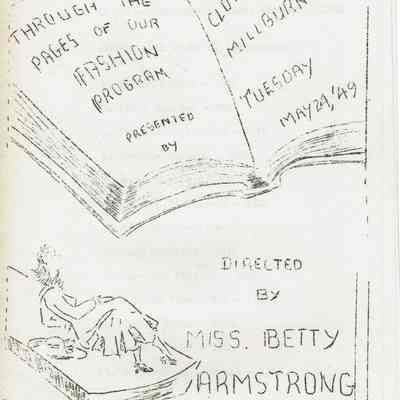 THROUGH THE
PAGES OF OUR
FASHION
PROGRAM
PRESENTED
BY
MILLBURN
TUESDAY
MAY 24, '49
DIRECTED
BY
MISS. BETTY
ARMSTRONG